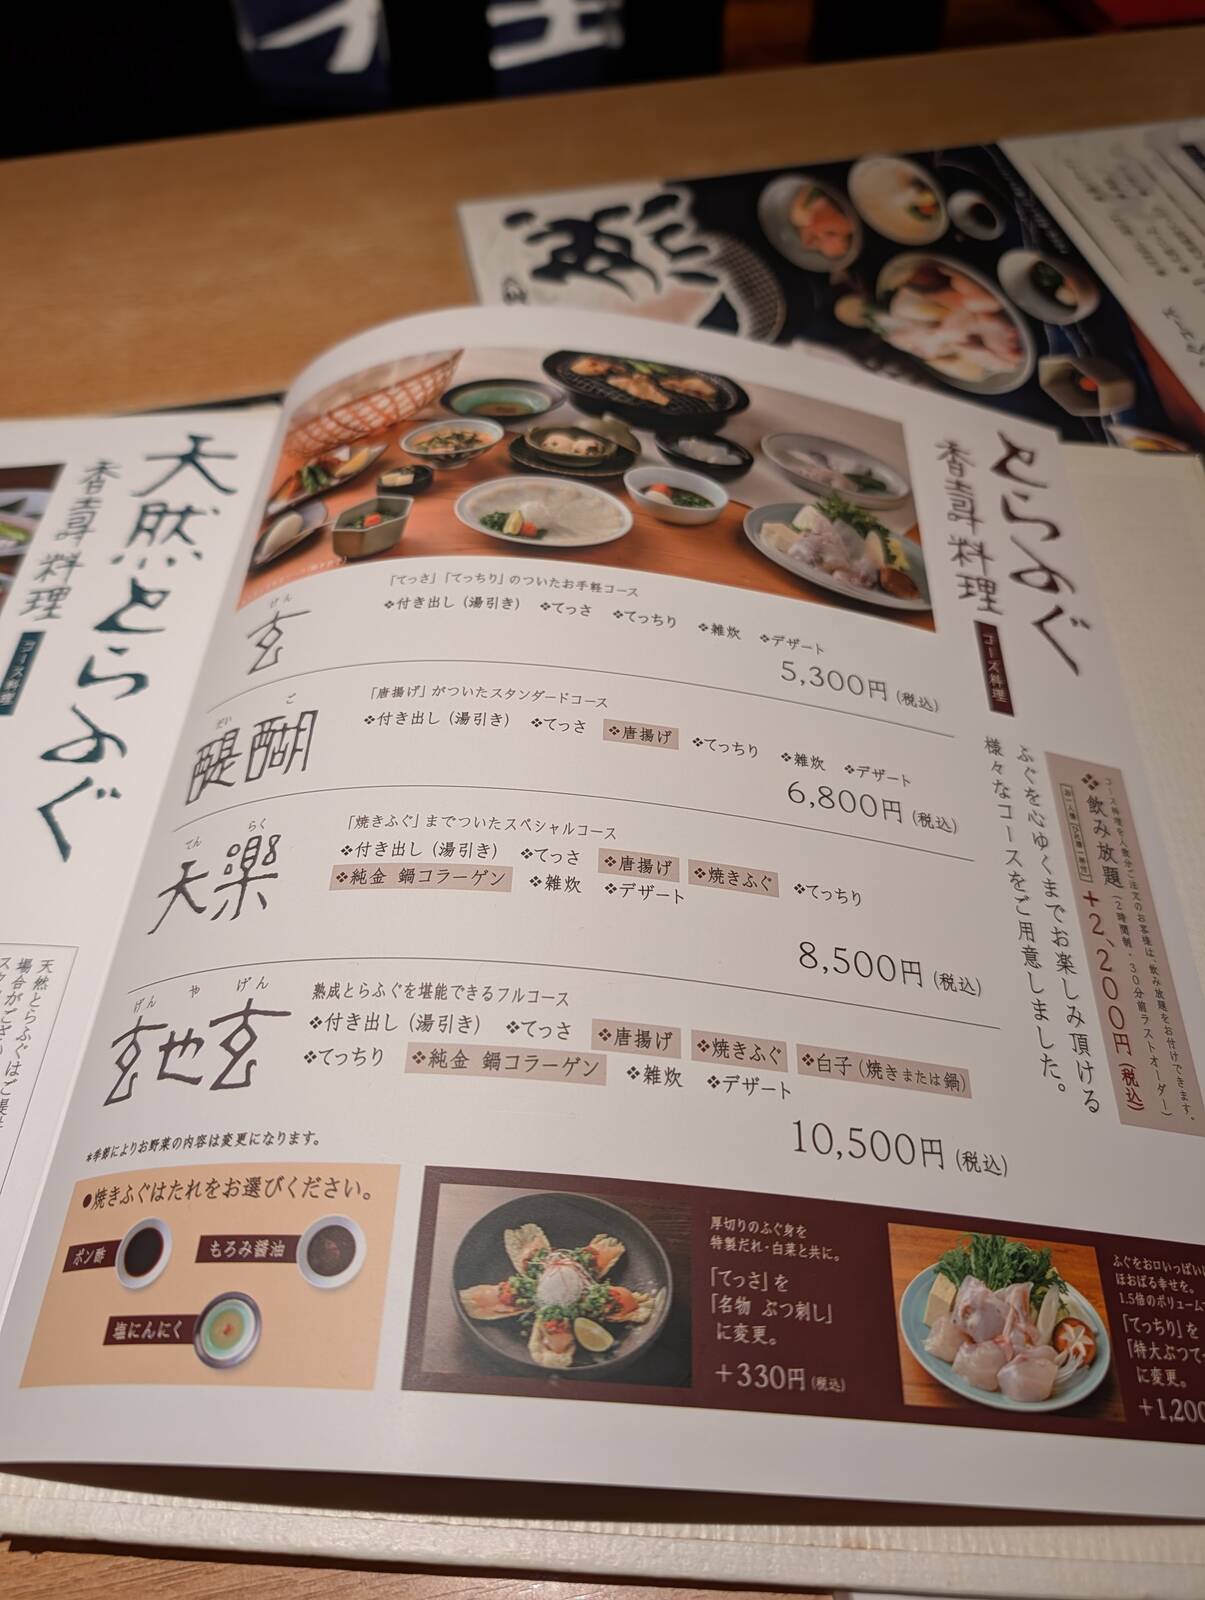 とらふぐ
香壽料理
コース料理
ふぐを心ゆくまでお楽しみ頂ける
様々なコースをご用意しました。
コース料理を人数分ご注文のお客様は、飲み放題をお付けできます。
❖飲み放題(2時間制・30分前ラストオーダー)
+2,200円(税込)
「てっさ」「てっちり」のついたお手軽コース
げん
玄
❖付き出し(湯引き) ❖てっさ ❖てっちり ❖雑炊 ❖デザート
5,300円(税込)
「唐揚げ」がついたスタンダードコース
だいご
醍醐
❖付き出し(湯引き) ❖てっさ ❖唐揚げ ❖てっちり ❖雑炊 ❖デザート
6,800円(税込)
「焼きふぐ」までついたスペシャルコース
てんらく
天樂
❖付き出し(湯引き) ❖てっさ ❖唐揚げ ❖焼きふぐ ❖てっちり
❖純金 鍋コラーゲン ❖雑炊 ❖デザート
8,500円(税込)
熟成とらふぐを堪能できるフルコース
げんやげん
玄也玄
❖付き出し(湯引き) ❖てっさ ❖唐揚げ ❖焼きふぐ ❖白子(焼きまたは鍋)
❖てっちり ❖純金 鍋コラーゲン ❖雑炊 ❖デザート
10,500円(税込)
*季節によりお野菜の内容は変更になります。
●焼きふぐはたれをお選びください。
ポン酢
もろみ醤油
塩にんにく
厚切りのふぐ身を
特製だれ・白菜と共に。
「てっさ」を
「名物 ぶつ刺し」
に変更。
+330円(税込)
ふぐをお口いっぱい
ほおばる幸せを。
1.5倍のボリューム
「てっちり」を
「特大ぶつて
に変更。
+1,200
天然とらふぐ
香壽料理
コース料理
天然とらふぐはご
場合がござ